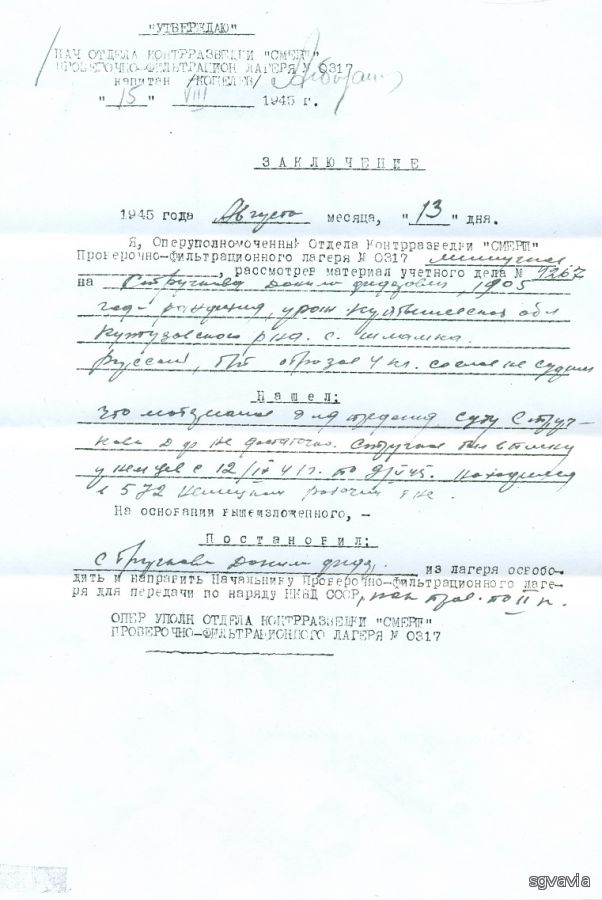 "УТВЕРЖДАЮ"
НАЧ ОТДЕЛА КОНТРРАЗВЕДКИ "СМЕРШ"
ПРОВЕРОЧНО-ФИЛЬТРАЦИОН ЛАГЕРЯ № 0317
капитан /КОПЕЛЕВ/
"15" VIII 1945 г.
ЗАКЛЮЧЕНИЕ
1945 года Августа месяца, "13" дня.
Я, Оперуполномоченный Отдела Контрразведки "СМЕРШ"
Проверочно-фильтрационного лагеря № 0317
, рассмотрев материал учетного дела № 9267
на Стручкова Данила 1905
год рождения, урож Куйбышевской обл
Кутузовского р-на. с. Шламка.
русский, б/п образов 4 кл. со слов не судим
Нашел:
Что материалов для предания суду Струч-
кова Д не достаточно. Стручков был в плену
у немцев с 12/IX 41 г. по 9/V 45. находился
в 572 немецком рабочем
На основании вышеизложенного, –
Постановил:
Стручкова Данила из лагеря освобо-
дить и направить Начальнику Проверочно-фильтрационного лаге-
ря для передачи по наряду НКВД СССР, по II к.
ОПЕР УПОЛН ОТДЕЛА КОНТРРАЗВЕДКИ "СМЕРШ"
ПРОВЕРОЧНО-ФИЛЬТРАЦИОННОГО ЛАГЕРЯ № 0317
sgvavia